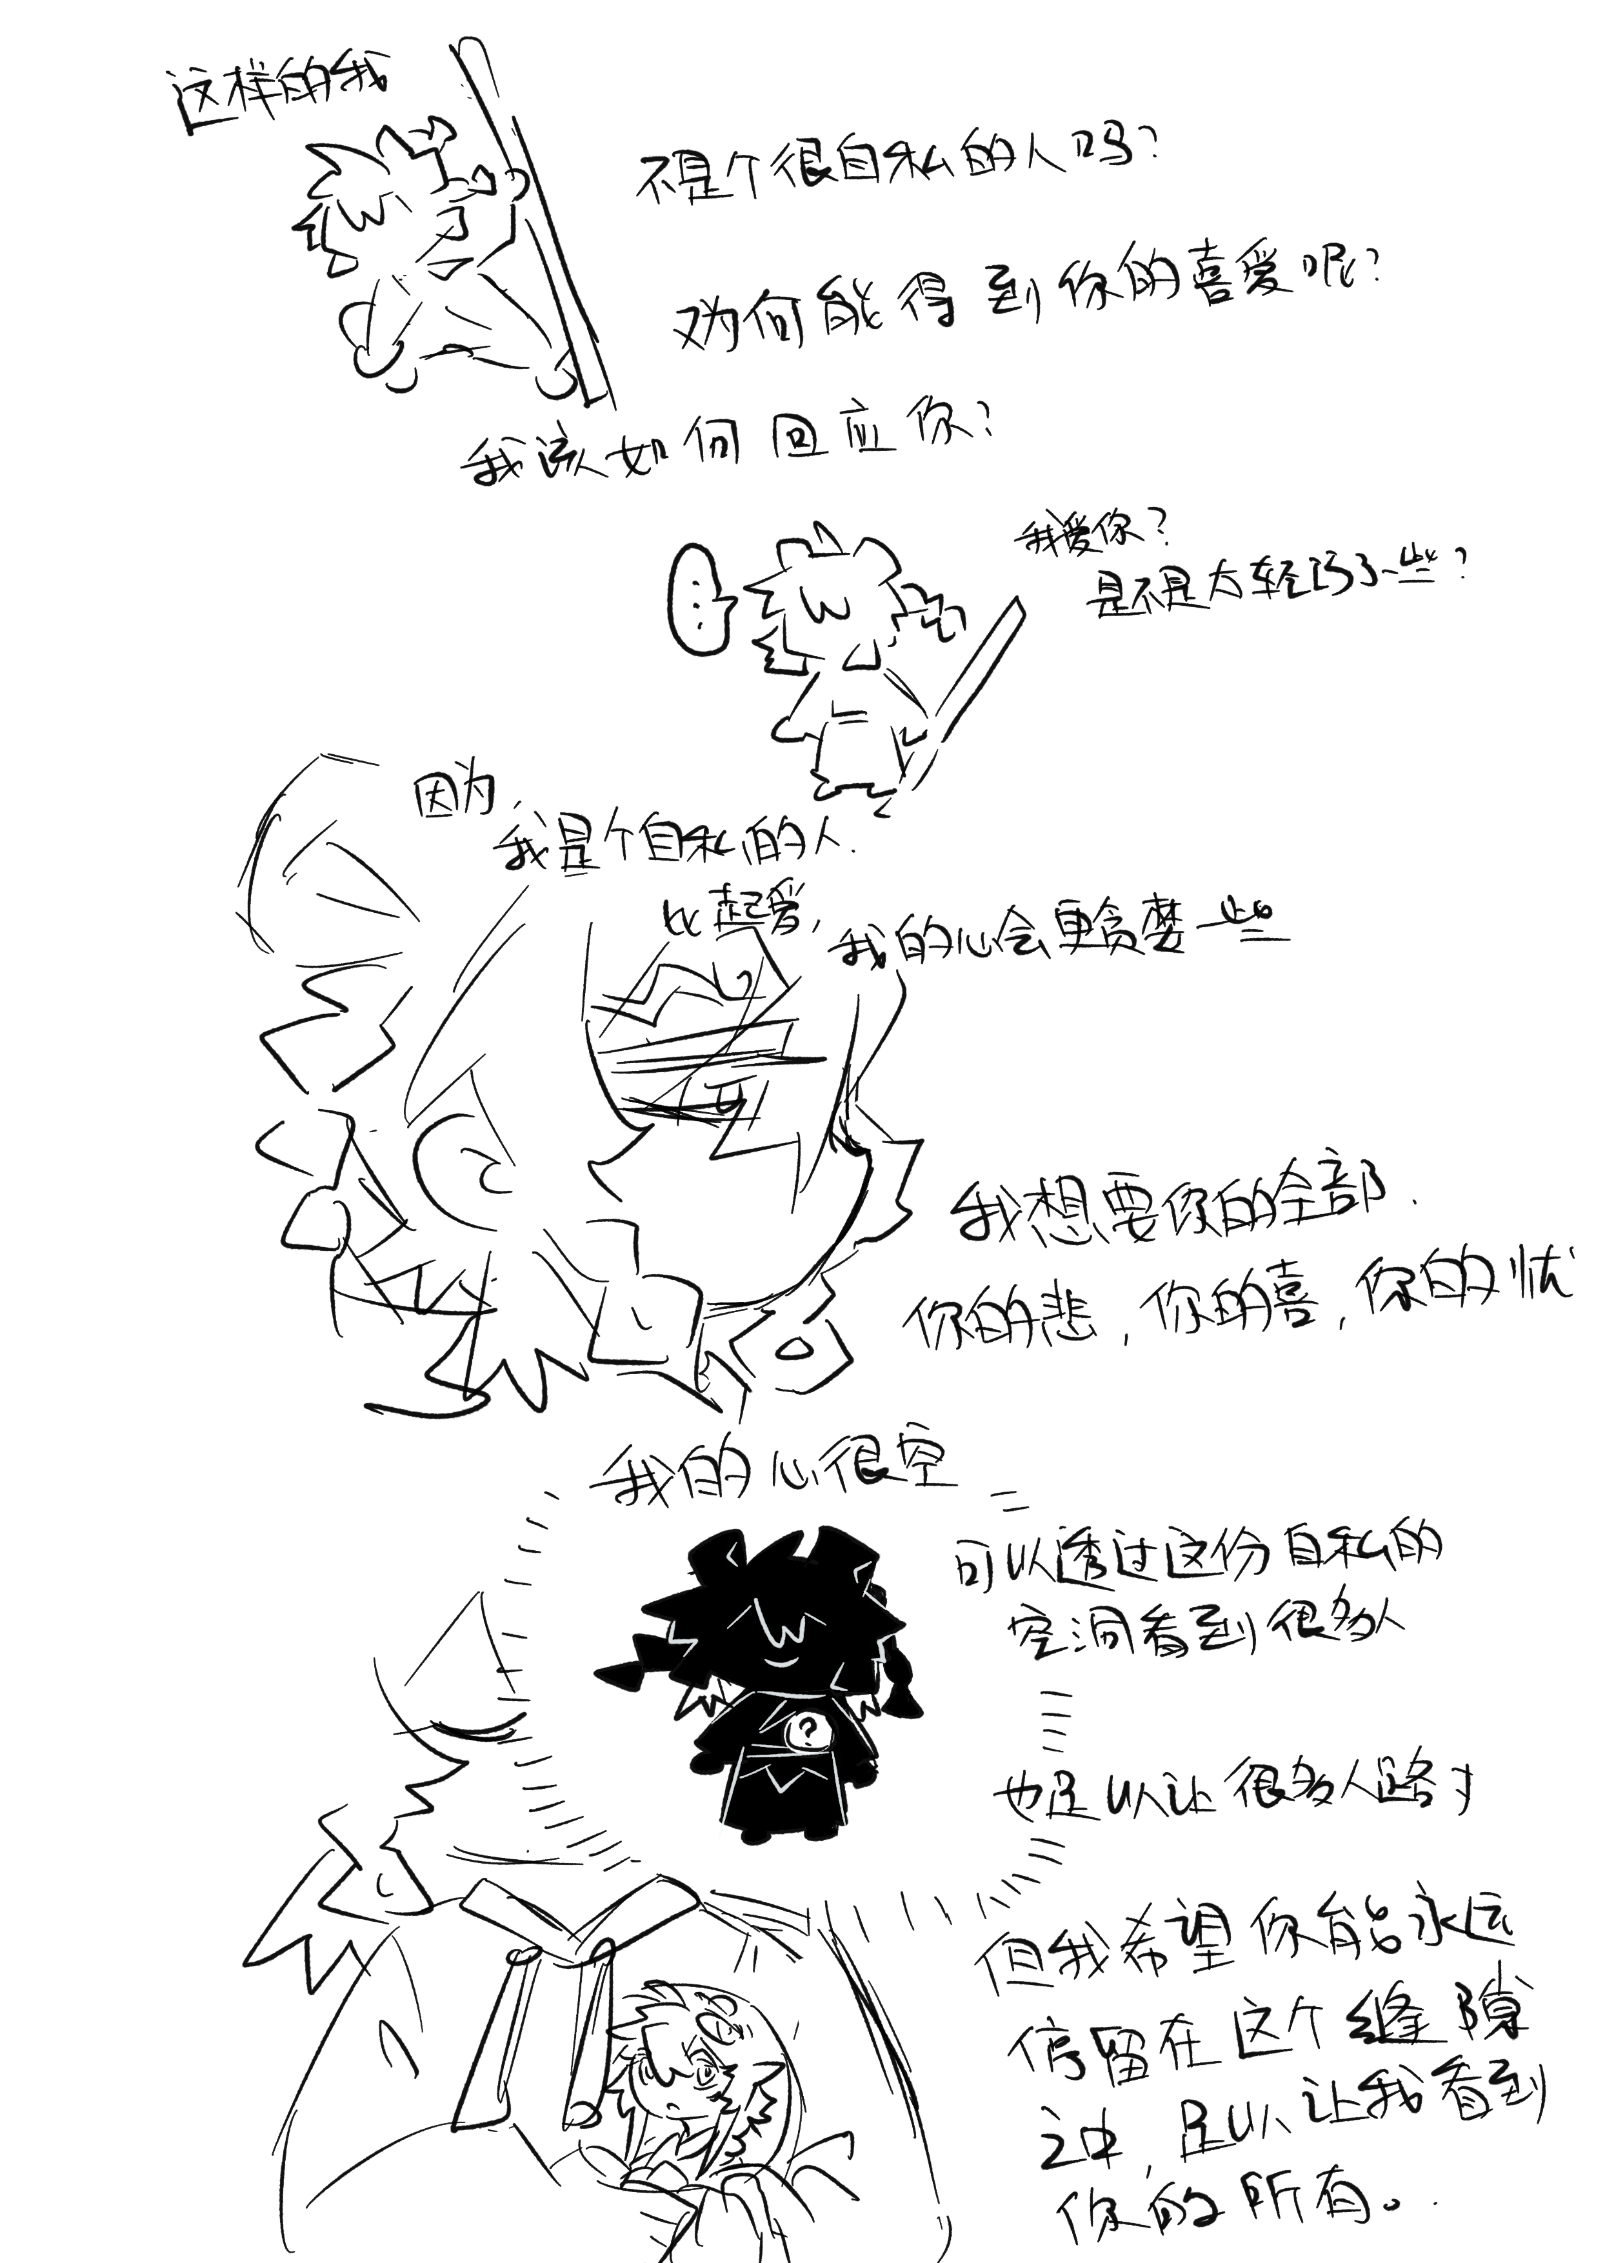 这样的我
不是个很自私的人吗?
又为何能得到你的喜爱呢?
我该如何回应你?
我爱你?
是不是太轻巧了一些?
因为,
我是个自私的人.
比起爱,
我的心会更贪婪一些
我想要你的全部.
你的悲,你的喜,你的忧
我的心很空
可以透过这份自私的
空洞看到很多人
?
也足以让很多人路过
但我希望你能永远
停留在这个缝隙
之中,足以让我看到
你的所有。.